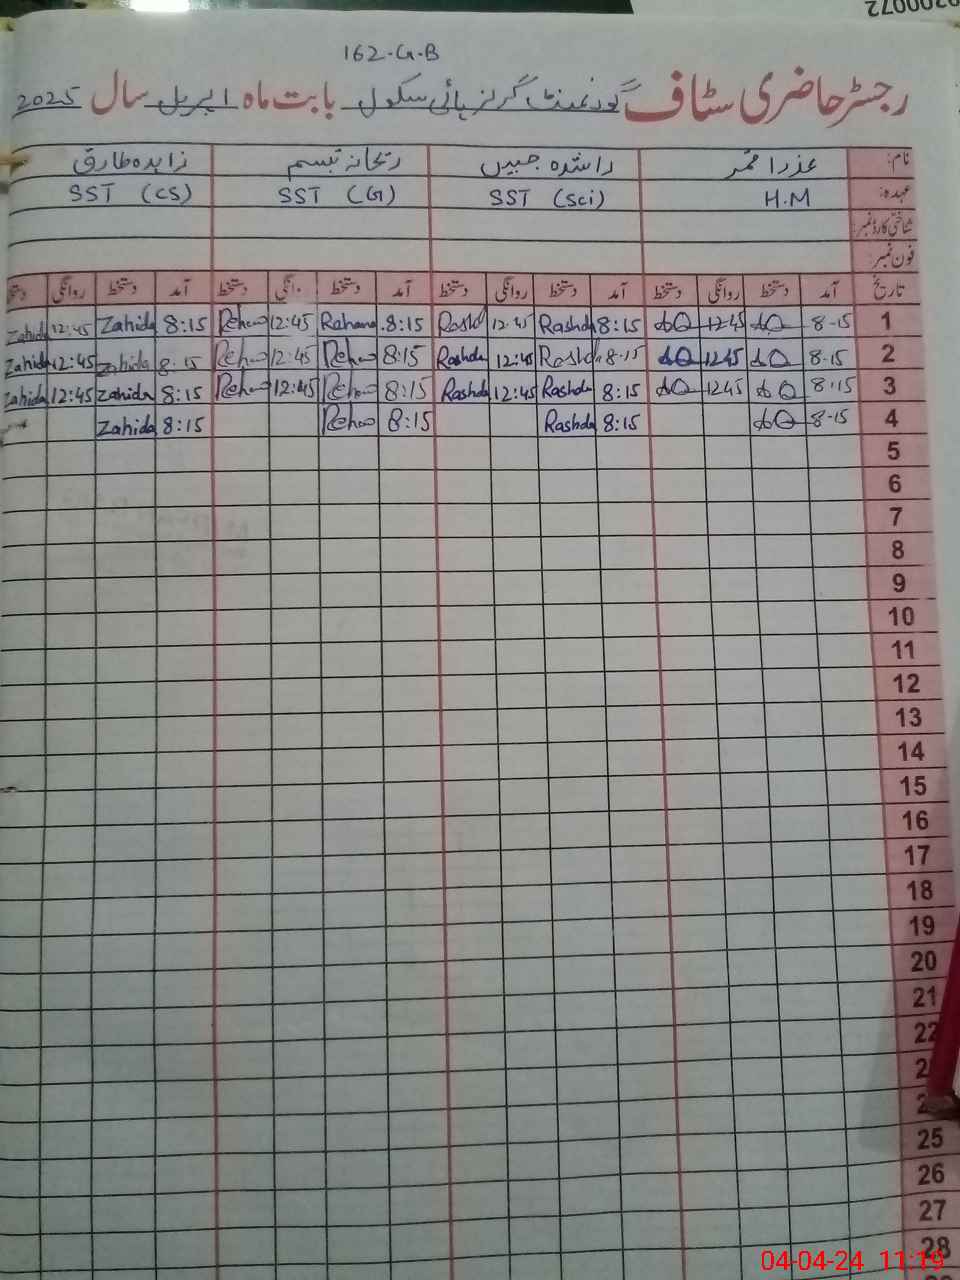 162-G-B
رجسٹر حاضری سٹاف گورنمنٹ گرلز ہائی سکول بابت ماہ اپریل سال 2025
نام: عذرا قمر راشدہ جبیں ریحانہ تبسم زاہدہ طارق
عہدہ: H.M SST (Sci) SST (G) SST (CS)
شناختی کارڈ نمبر:
فون نمبر:
تاریخ آمد دستخط روانگی دستخط آمد دستخط روانگی دستخط آمد دستخط روانگی دستخط آمد دستخط روانگی
1 8-15 12 45 8:15 Rashda 12:45 Rashd 8:15 Rahana 12:45 8:15 Zahida 12:45 Zahida
2 8-15 12 45 8-15 Rashda 12:45 Rashda 8:15 12:45 8:15 Zahida 12:45 Zahida
3 8:15 12 45 8:15 Rashda 12:45 Rashda 8:15 12:45 8:15 Zahida 12:45 Zahida
4 8-15 8:15 Rashda 8:15 8:15 Zahida
5
6
7
8
9
10
11
12
13
14
15
16
17
18
19
20
21
22
25
26
27
28
04-04-24 11:19